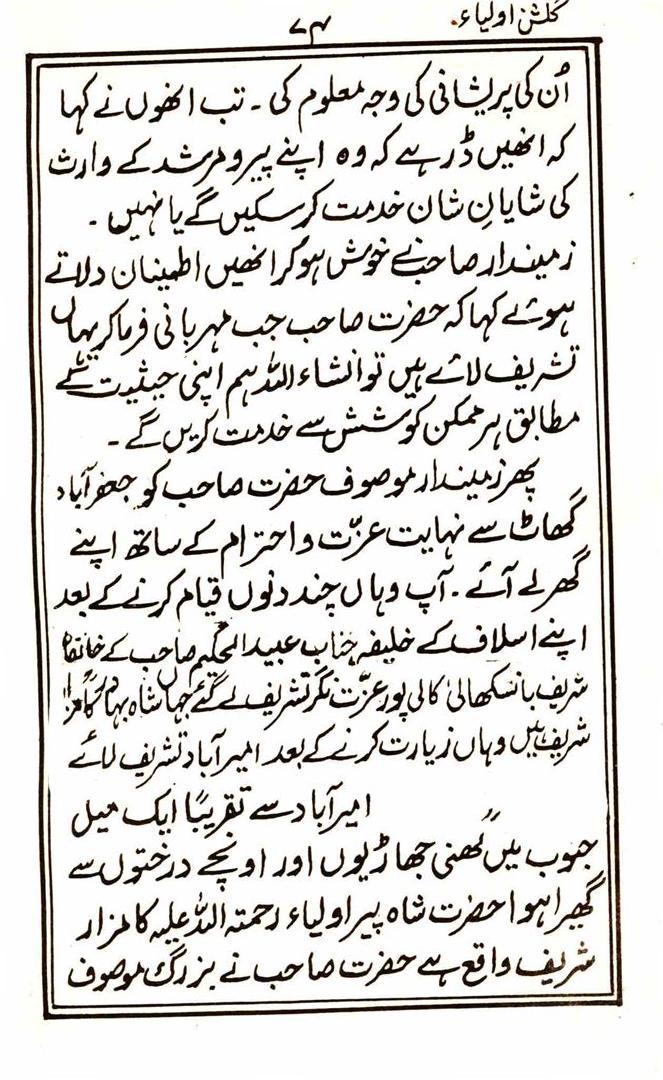 گلشن اولیاء
۷۴
اُن کی پریشانی کی وجہ معلوم کی ۔ تب انھوں نے کہا
کہ انھیں ڈر ہے کہ وہ اپنے پیر و مرشد کے وارث
کی شایانِ شان خدمت کر سکیں گے یا نہیں ۔
زمیندار صاحب نے خوش ہو کر انھیں اطمینان دلاتے
ہوئے کہا کہ حضرت صاحب جب مہربانی فرما کر یہاں
تشریف لائے ہیں تو انشاء اللہ ہم اپنی حیثیت کے
مطابق ہر ممکن کوشش سے خدمت کریں گے ۔
پھر زمیندار موصوف حضرت صاحب کو جعفر آباد
گھاٹ سے نہایت عزّت و احترام کے ساتھ اپنے
گھر لے آئے ۔ آپ وہاں چند دنوں قیام کرنے کے بعد
اپنے اسلاف کے خلیفہ جناب عبید الحکیم صاحب کے خانقاہ
شریف بانسکھالی کالی پور عزّت نگر تشریف لے گئے جہاں شاہ
شریف ہیں وہاں زیارت کرنے کے بعد امیر آباد تشریف لائے
امیر آباد سے تقریبًا ایک میل
جنوب میں گھنی جھاڑیوں اور اونچے درختوں سے
گھیرا ہوا حضرت شاہ پیر اولیاء رحمتہ اللہ علیہ کا مزار
شریف واقع ہے حضرت صاحب نے بزرگ موصوف